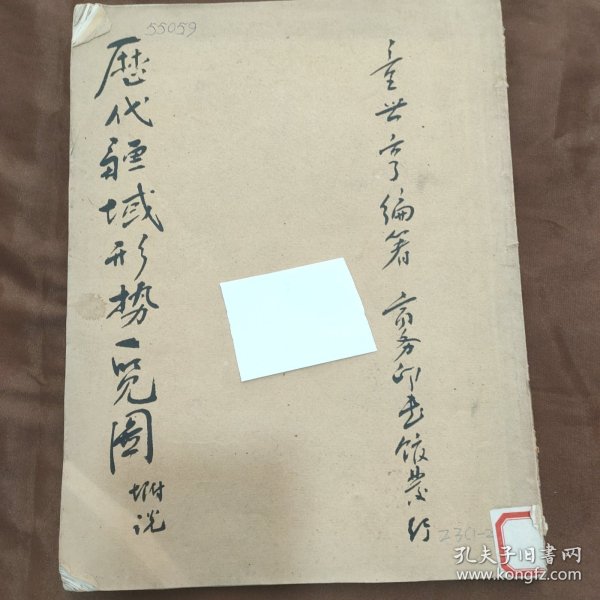 55059
歷代疆域形势一览圖
坿说
童世亨編著 商务印书馆發行
Z3(1-2
孔夫子旧书网
www.kongfz.com